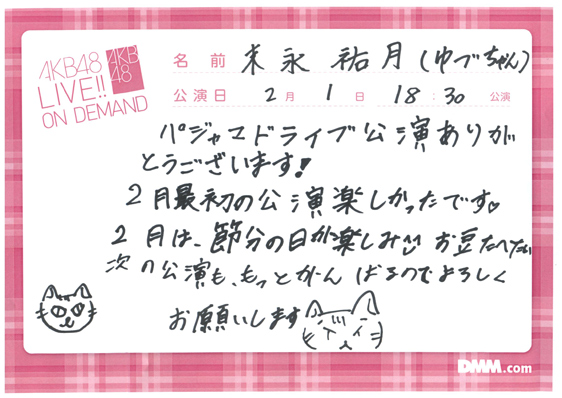 AKB48
LIVE!!
ON DEMAND
AKB
48
名前 末永 祐月(ゆづちゃん)
公演日 2月 1日 18:30 公演
パジャマドライブ公演ありが
とうございます!
2月最初の公演楽しかったです♡
2月は、節分の日が楽しみ お豆たべたい
次の公演も、もっとがんばるのでよろしく
お願いします
DMM.com